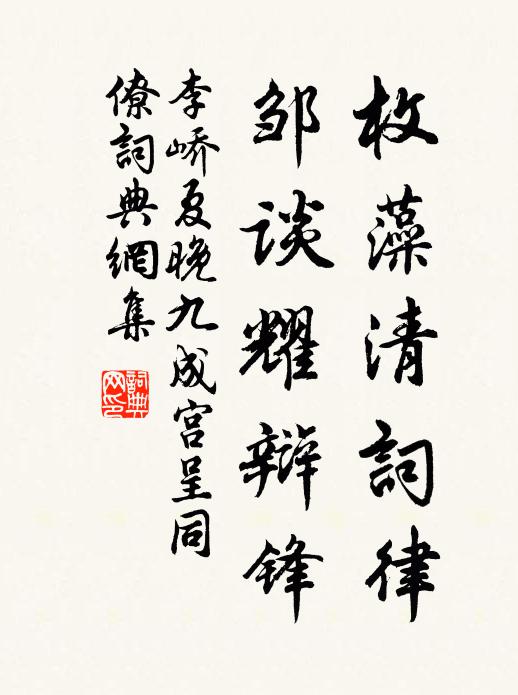 枚藻清詞律
邹谈耀辩锋
李嶠夏晚九成宫呈同
僚詞典網集
詞典网印